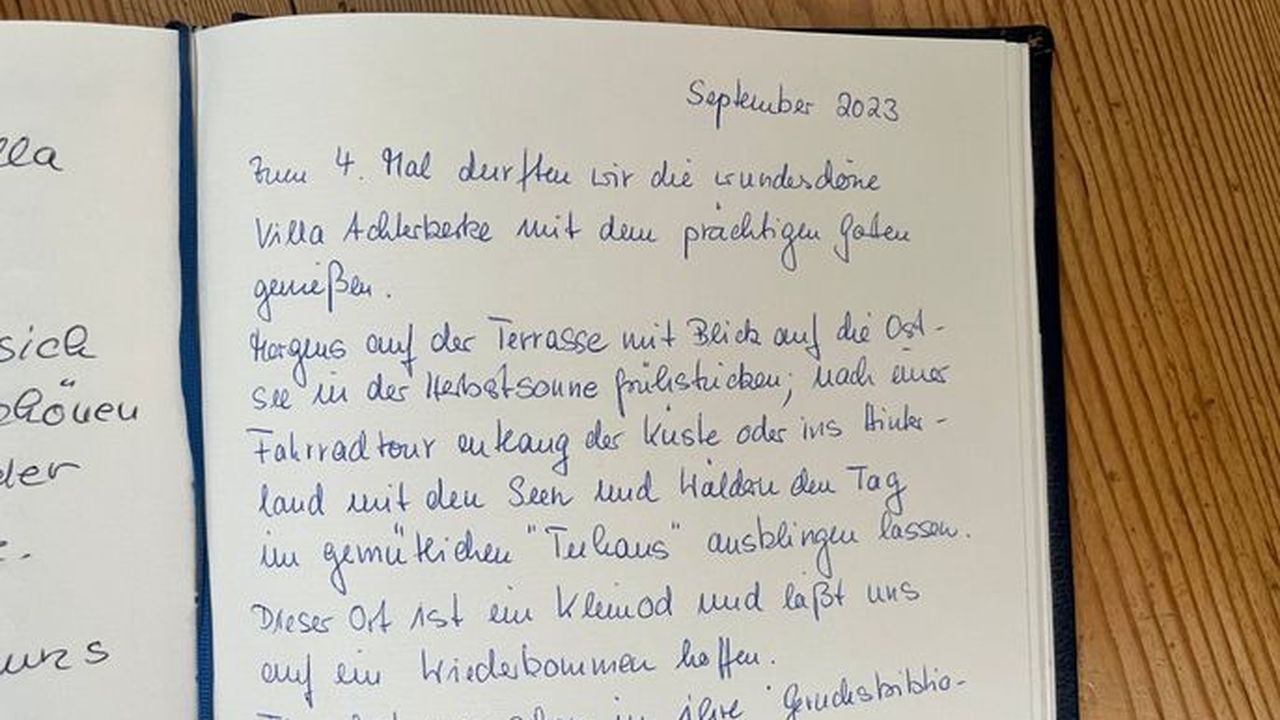 lla
sich
chönen
der
uns
September 2023
Zum 4. Mal durften wir die wunderschöne
Villa Achterkerke mit dem prächtigen Garten
genießen.
Morgens auf der Terrasse mit Blick auf die Ost-
see in der Herbstsonne frühstücken; nach einer
Fahrradtour entlang der Küste oder ins Hinter-
land mit den Seen und Wäldern den Tag
im gemütlichen "Teehaus" ausklingen lassen.
Dieser Ort ist ein Kleinod und läßt uns
auf ein Wiederkommen hoffen.
in ihre Geruchsbiblio-